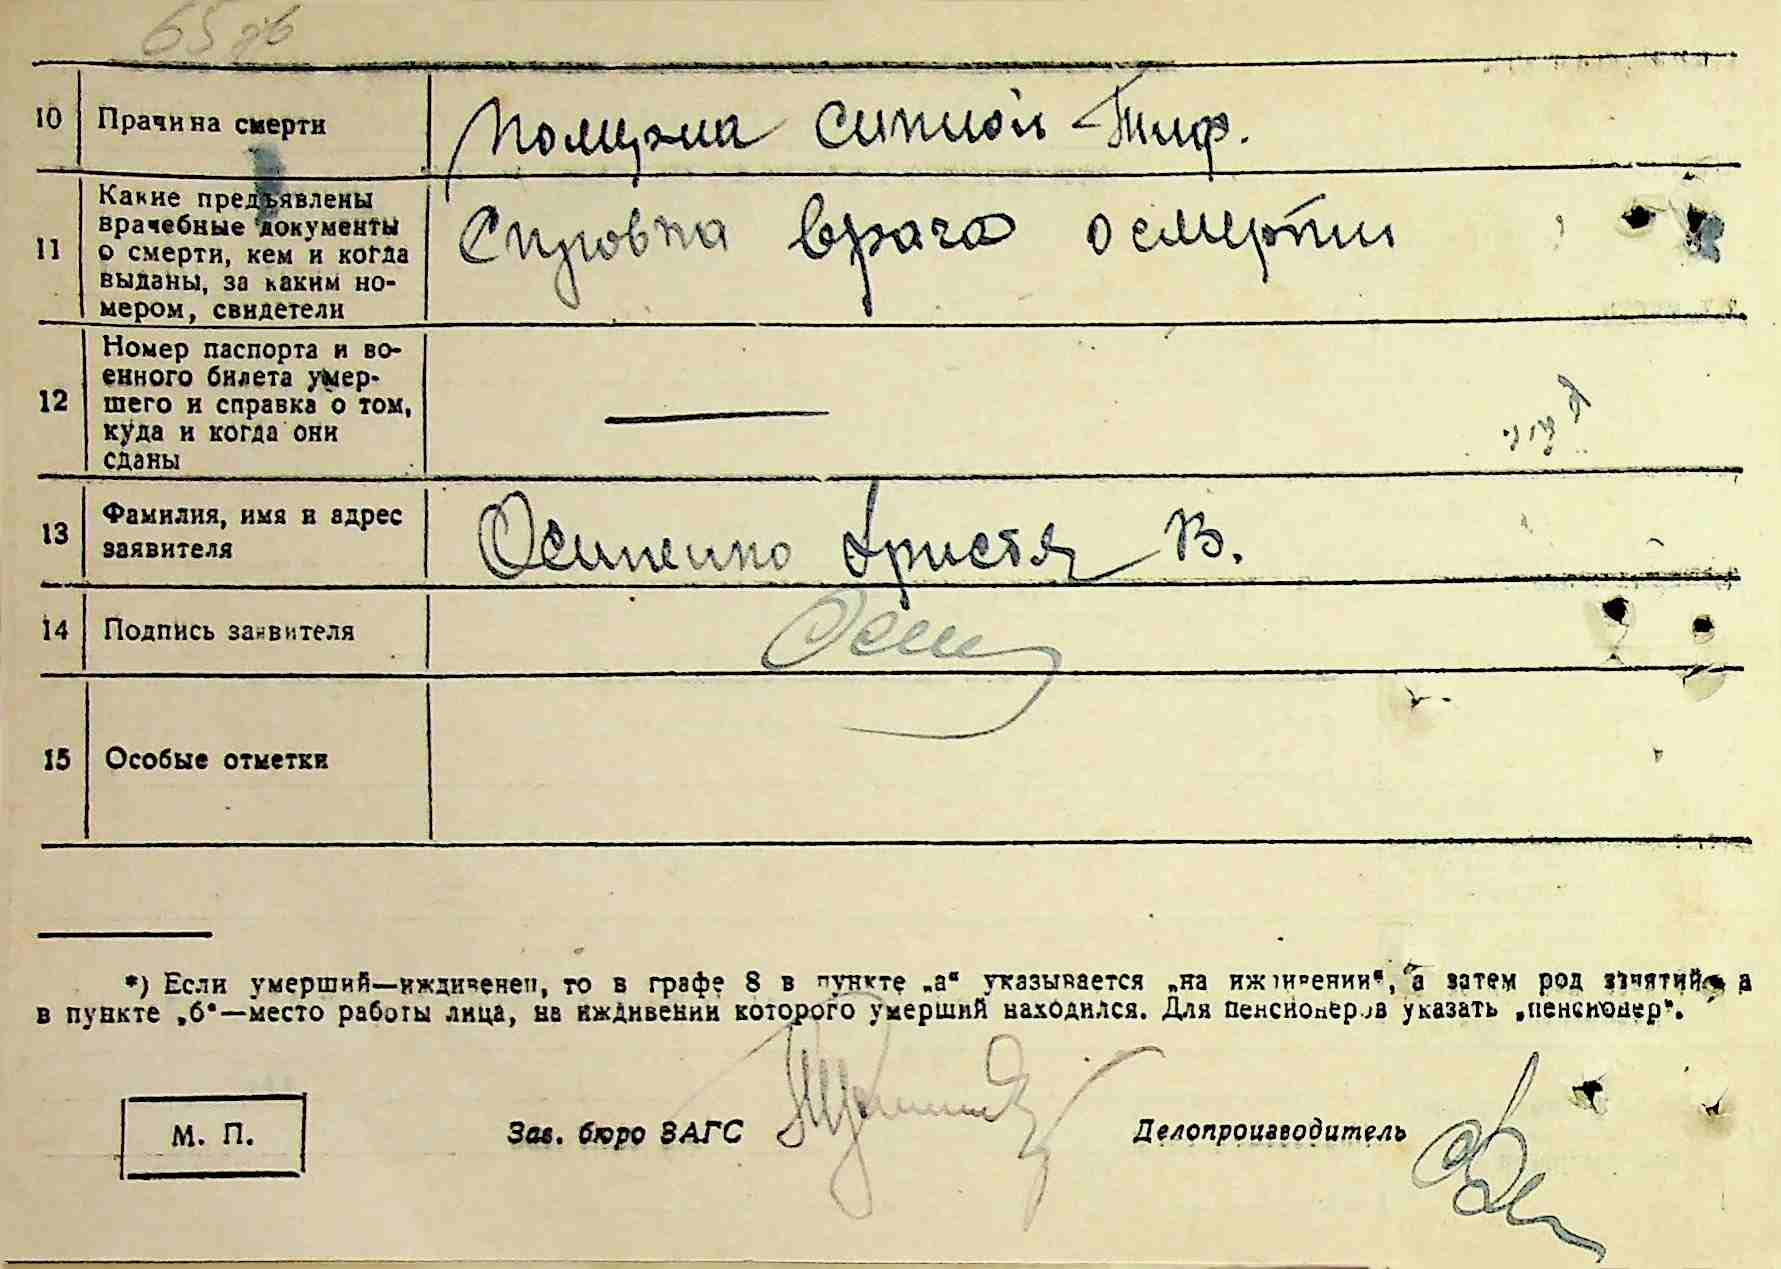 65 об
10 Причина смерти Померла сипной Тиф.
11 Какие предъявлены
врачебные документы
о смерти, кем и когда
выданы, за каким но-
мером, свидетели
Справка врача о смерти
12 Номер паспорта и во-
енного билета умер-
шего и справка о том,
куда и когда они
сданы
—
13 Фамилия, имя и адрес
заявителя
Осипенко Христя В.
14 Подпись заявителя Осип
15 Особые отметки
*) Если умерший—иждивенец, то в графе 8 в пункте „а“ указывается „на иждивении“, а затем род занятий, а
в пункте „б“—место работы лица, на иждивении которого умерший находился. Для пенсионеров указать „пенсионер“.
М. П. Зав. бюро ЗАГС Делопроизводитель